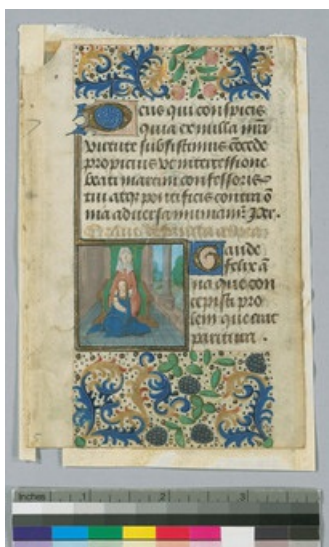 Deus qui conspicis
quia ex nulla nr̄a
virtute subsistimus cōcede
propicius ut intercessione
beati martini confessoris
tui atqȝ pontificis contra ō
nia adversa muniam̄. Per.
Gaude
felix ā
na que con
cepisti pro
lem que erat
paritura.
Inches 1 2 3